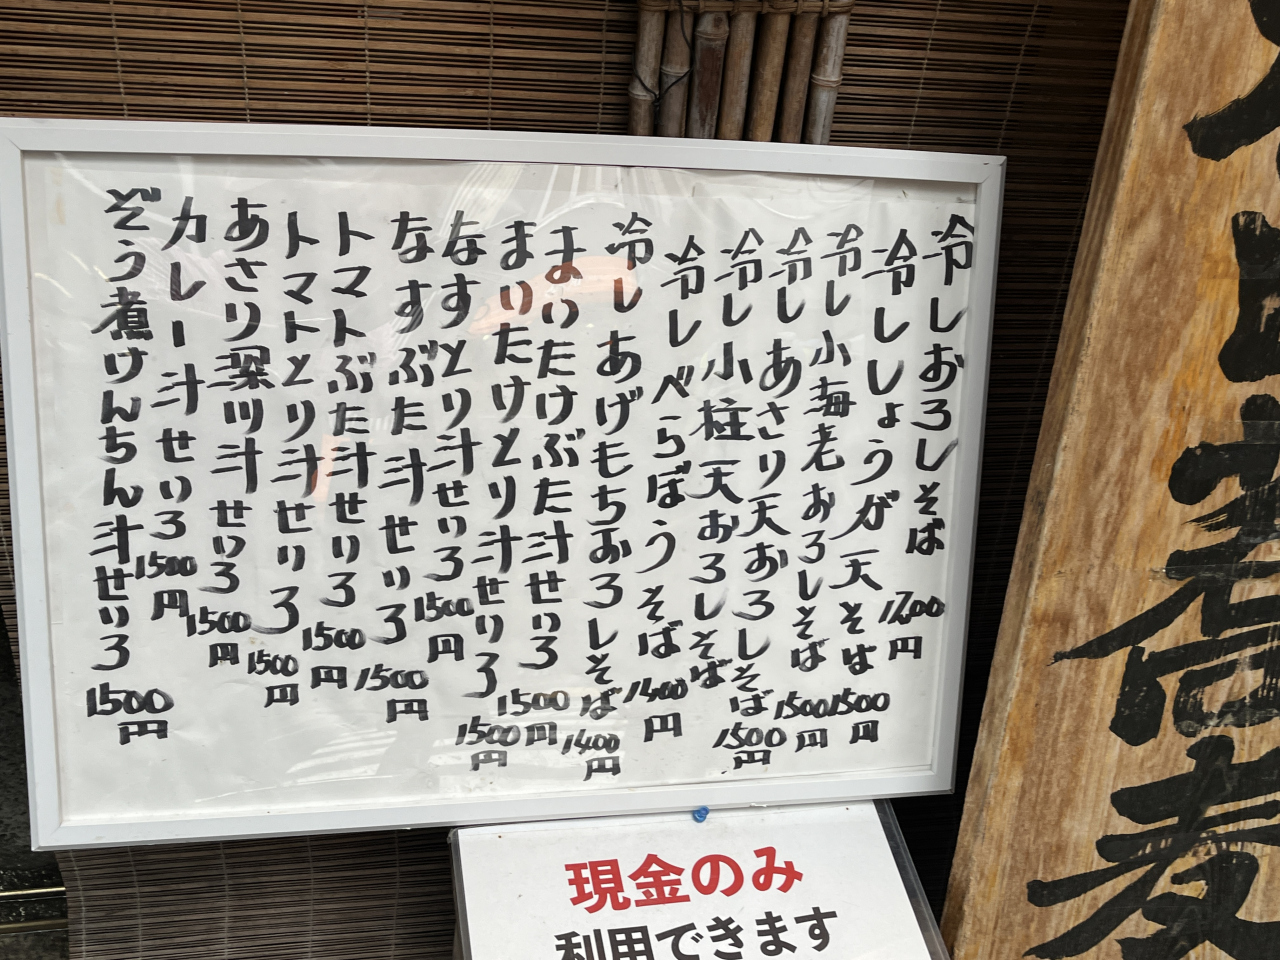 冷しおろしそば 1200円
冷ししょうが天そば 1500円
冷し小海老おろしそば 1500円
冷しあさり天おろしそば 1500円
冷し小柱天おろしそば
冷しべらぼうそば 1400円
冷しあげもちおろしそば 1400円
まいたけぶた汁せいろ 1500円
まいたけとり汁せいろ 1500円
なすとり汁せいろ 1500円
なすぶた汁せいろ 1500円
トマトぶた汁せいろ 1500円
トマトとり汁せいろ 1500円
あさり深川汁せいろ 1500円
カレー汁せいろ 1500円
ぞう煮けんちん汁せいろ 1500円
現金のみ
利用できます
蕎麦